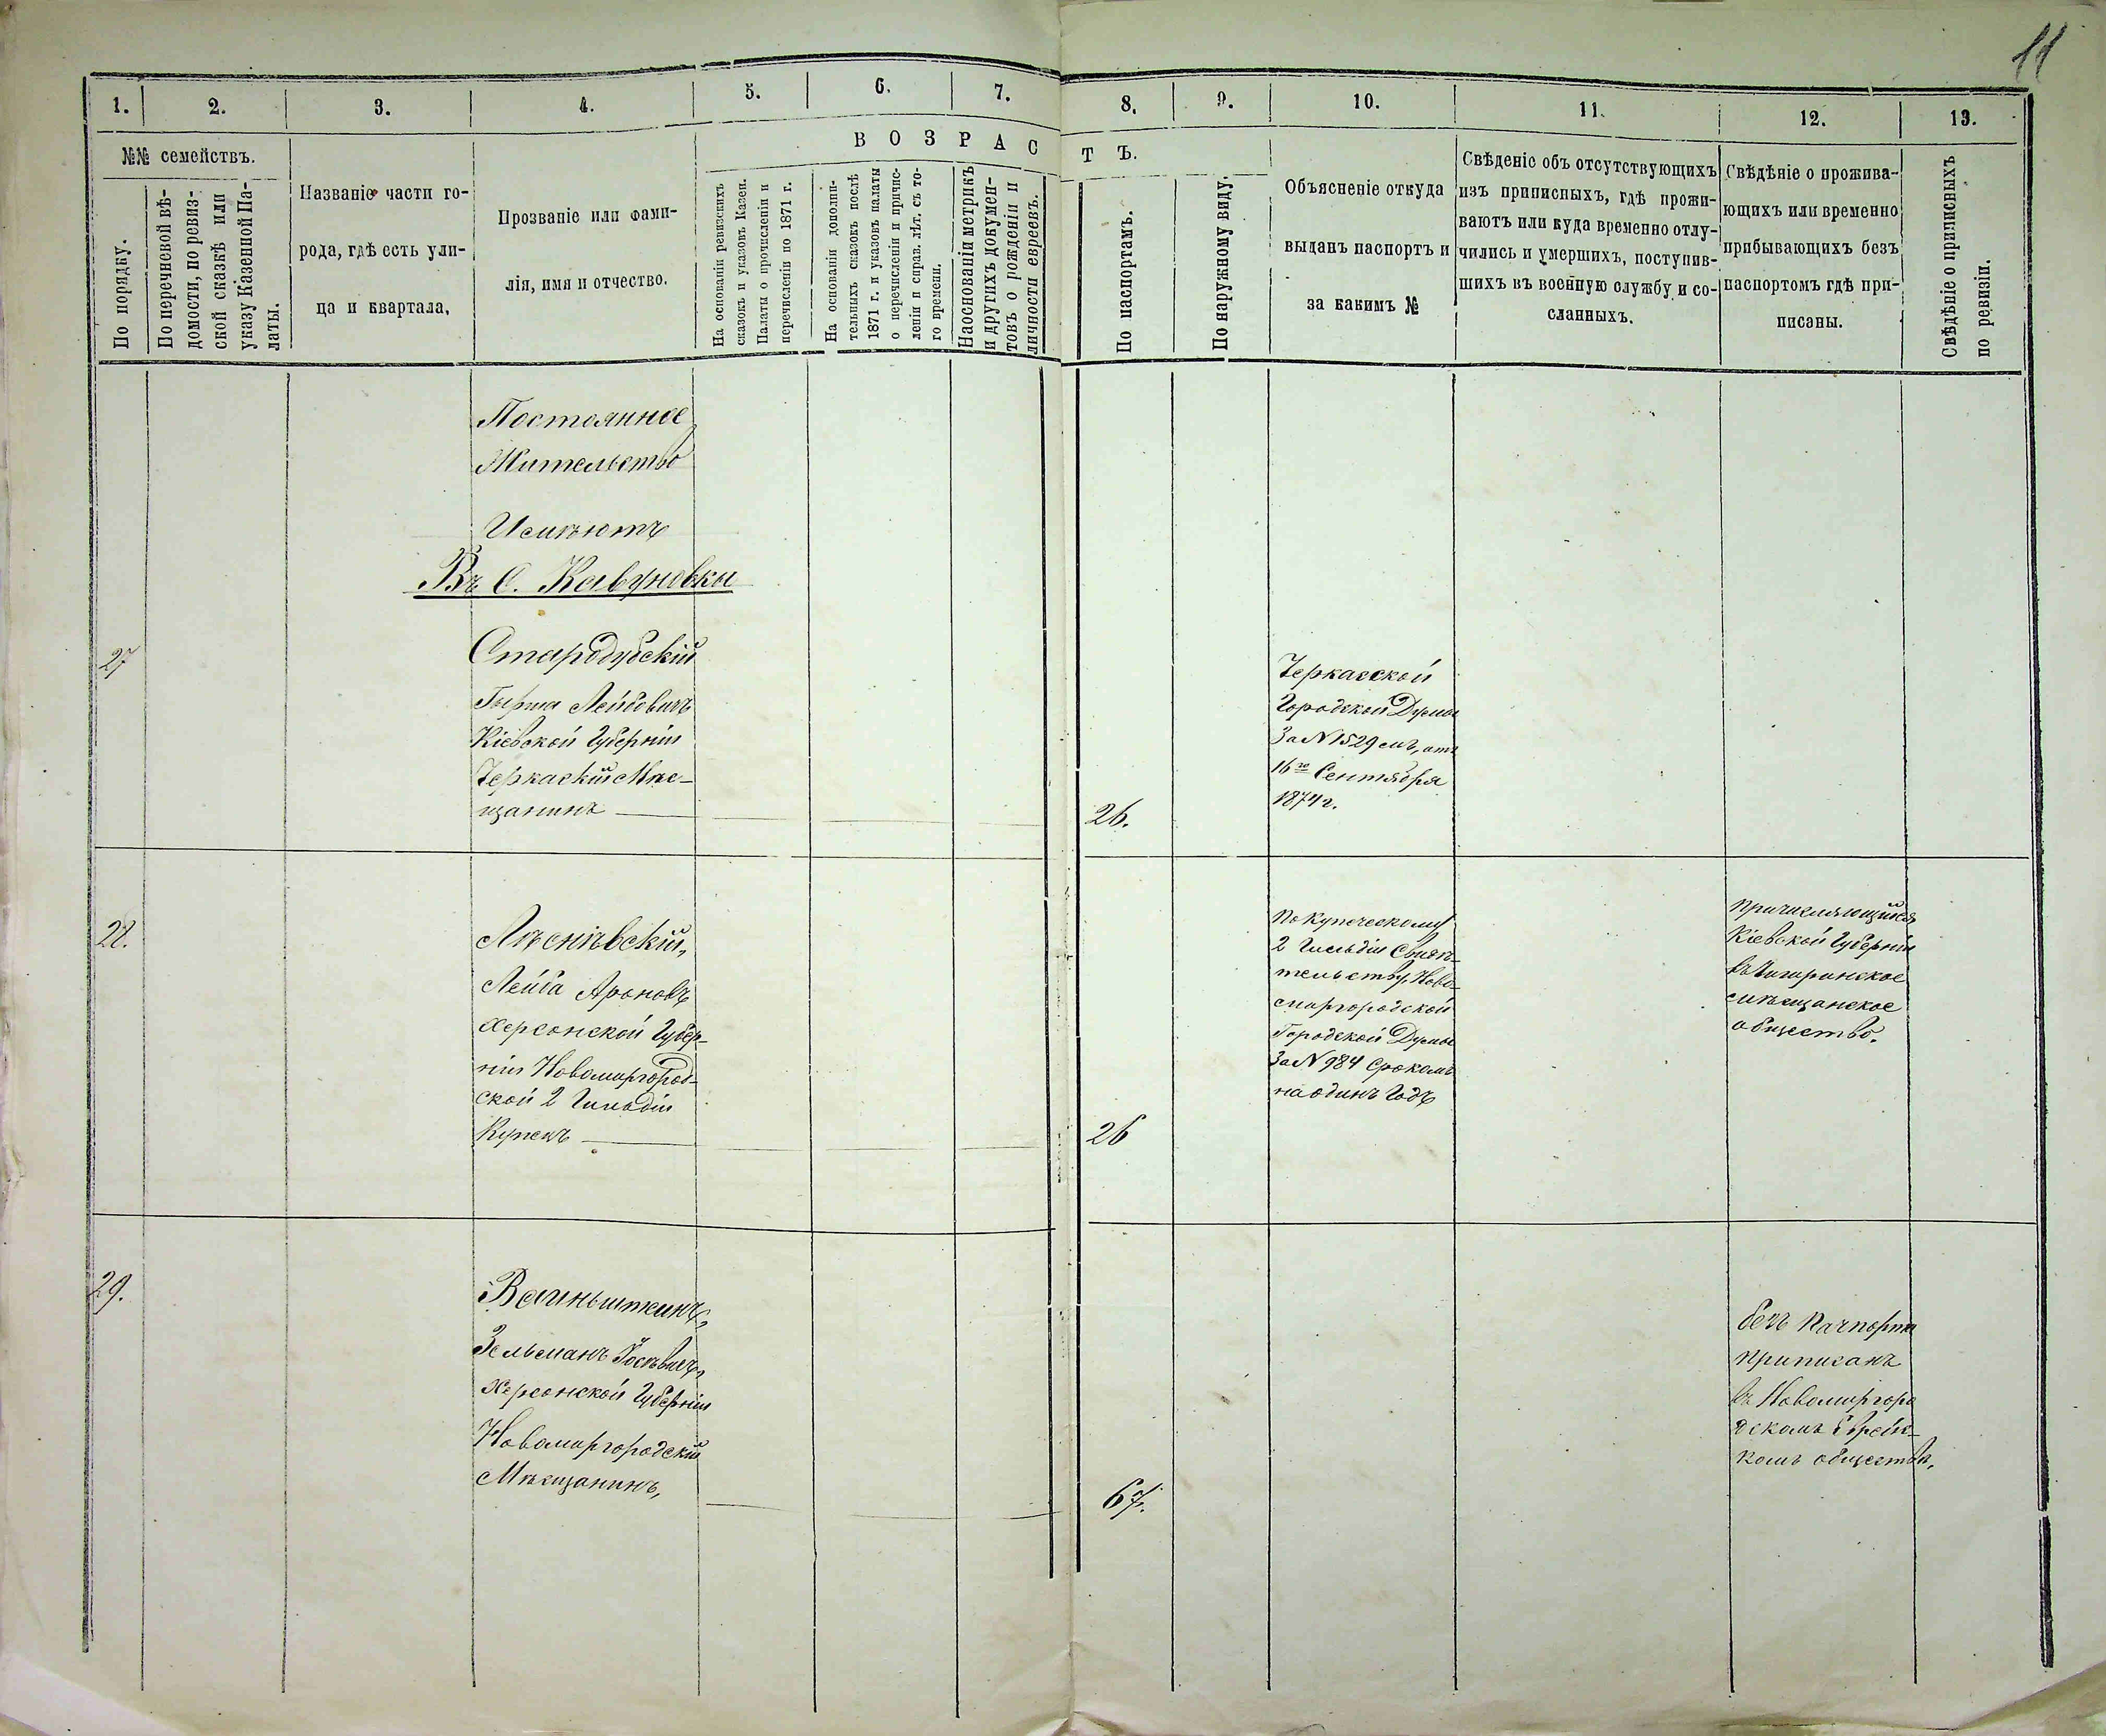 11
1. 2. 3. 4. 5. 6. 7. 8. 9. 10. 11. 12. 13.
№№ семействъ.
По порядку.
По перечневой вѣ-
домости, по ревиз-
ской сказкѣ или
указу Казенной Па-
латы.
Названіе части го-
рода, гдѣ есть ули-
ца и квартала,
Прозваніе или фами-
лія, имя и отчество.
ВОЗРАСТЪ.
На основаніи ревизскихъ
сказокъ и указовъ Казен.
Палаты о прочисленіи и
перечисленіи по 1871 г.
На основаніи дополни-
тельныхъ сказокъ послѣ
1871 г. и указовъ палаты
о перечисленіи и причис-
леніи и справ. лѣт. съ то-
го времени.
На основаніи метрикъ
и другихъ докумен-
товъ о рожденіи и
личности евреевъ.
По паспортамъ.
По наружному виду.
Объясненіе откуда
выданъ паспортъ и
за какимъ №
Свѣденіе объ отсутствующихъ
изъ приписныхъ, гдѣ прожи-
ваютъ или куда временно отлу-
чились и умершихъ, поступив-
шихъ въ военную службу и со-
сланныхъ.
Свѣдѣніе о прожива-
ющихъ или временно
прибывающихъ безъ
паспортомъ гдѣ при-
писаны.
Свѣдѣніе о приписныхъ
по ревизіи.
Постоянное
Жительство
Имѣютъ
Въ С. Кавуновки
27
Стародубскій
Гирша Лейбовичъ
Кіевской Губерніи
Черкаскій Мѣ-
щанинъ
26.
Черкасской
Городской Думы
За N 1529 мъ, отъ
16го Сентября
1874 г.
28.
Лѣсніѣвскій,
Лейба Ароновъ
Херсонской Губер-
ніи Новомиргород-
ской 2 Гильдіи
Купецъ
26
По Купеческому
2 Гильдіи Свидѣ-
тельству, Ново-
миргородской
Городской Думы
За N 984 Срокомъ
на одинъ Годъ
причисляющійся
Кіевской Губерніи
въ Чигиринское
мѣщанское
общество.
29.
Ваиньшткинъ,
Зельманъ Іосѣвичъ,
Херсонской Губерніи
Новомиргородскій
Мѣщанинъ,
67.
безъ Пачпорта
приписанъ
въ Новомиргоро
дскомъ Еврейс-
комъ обществѣ,